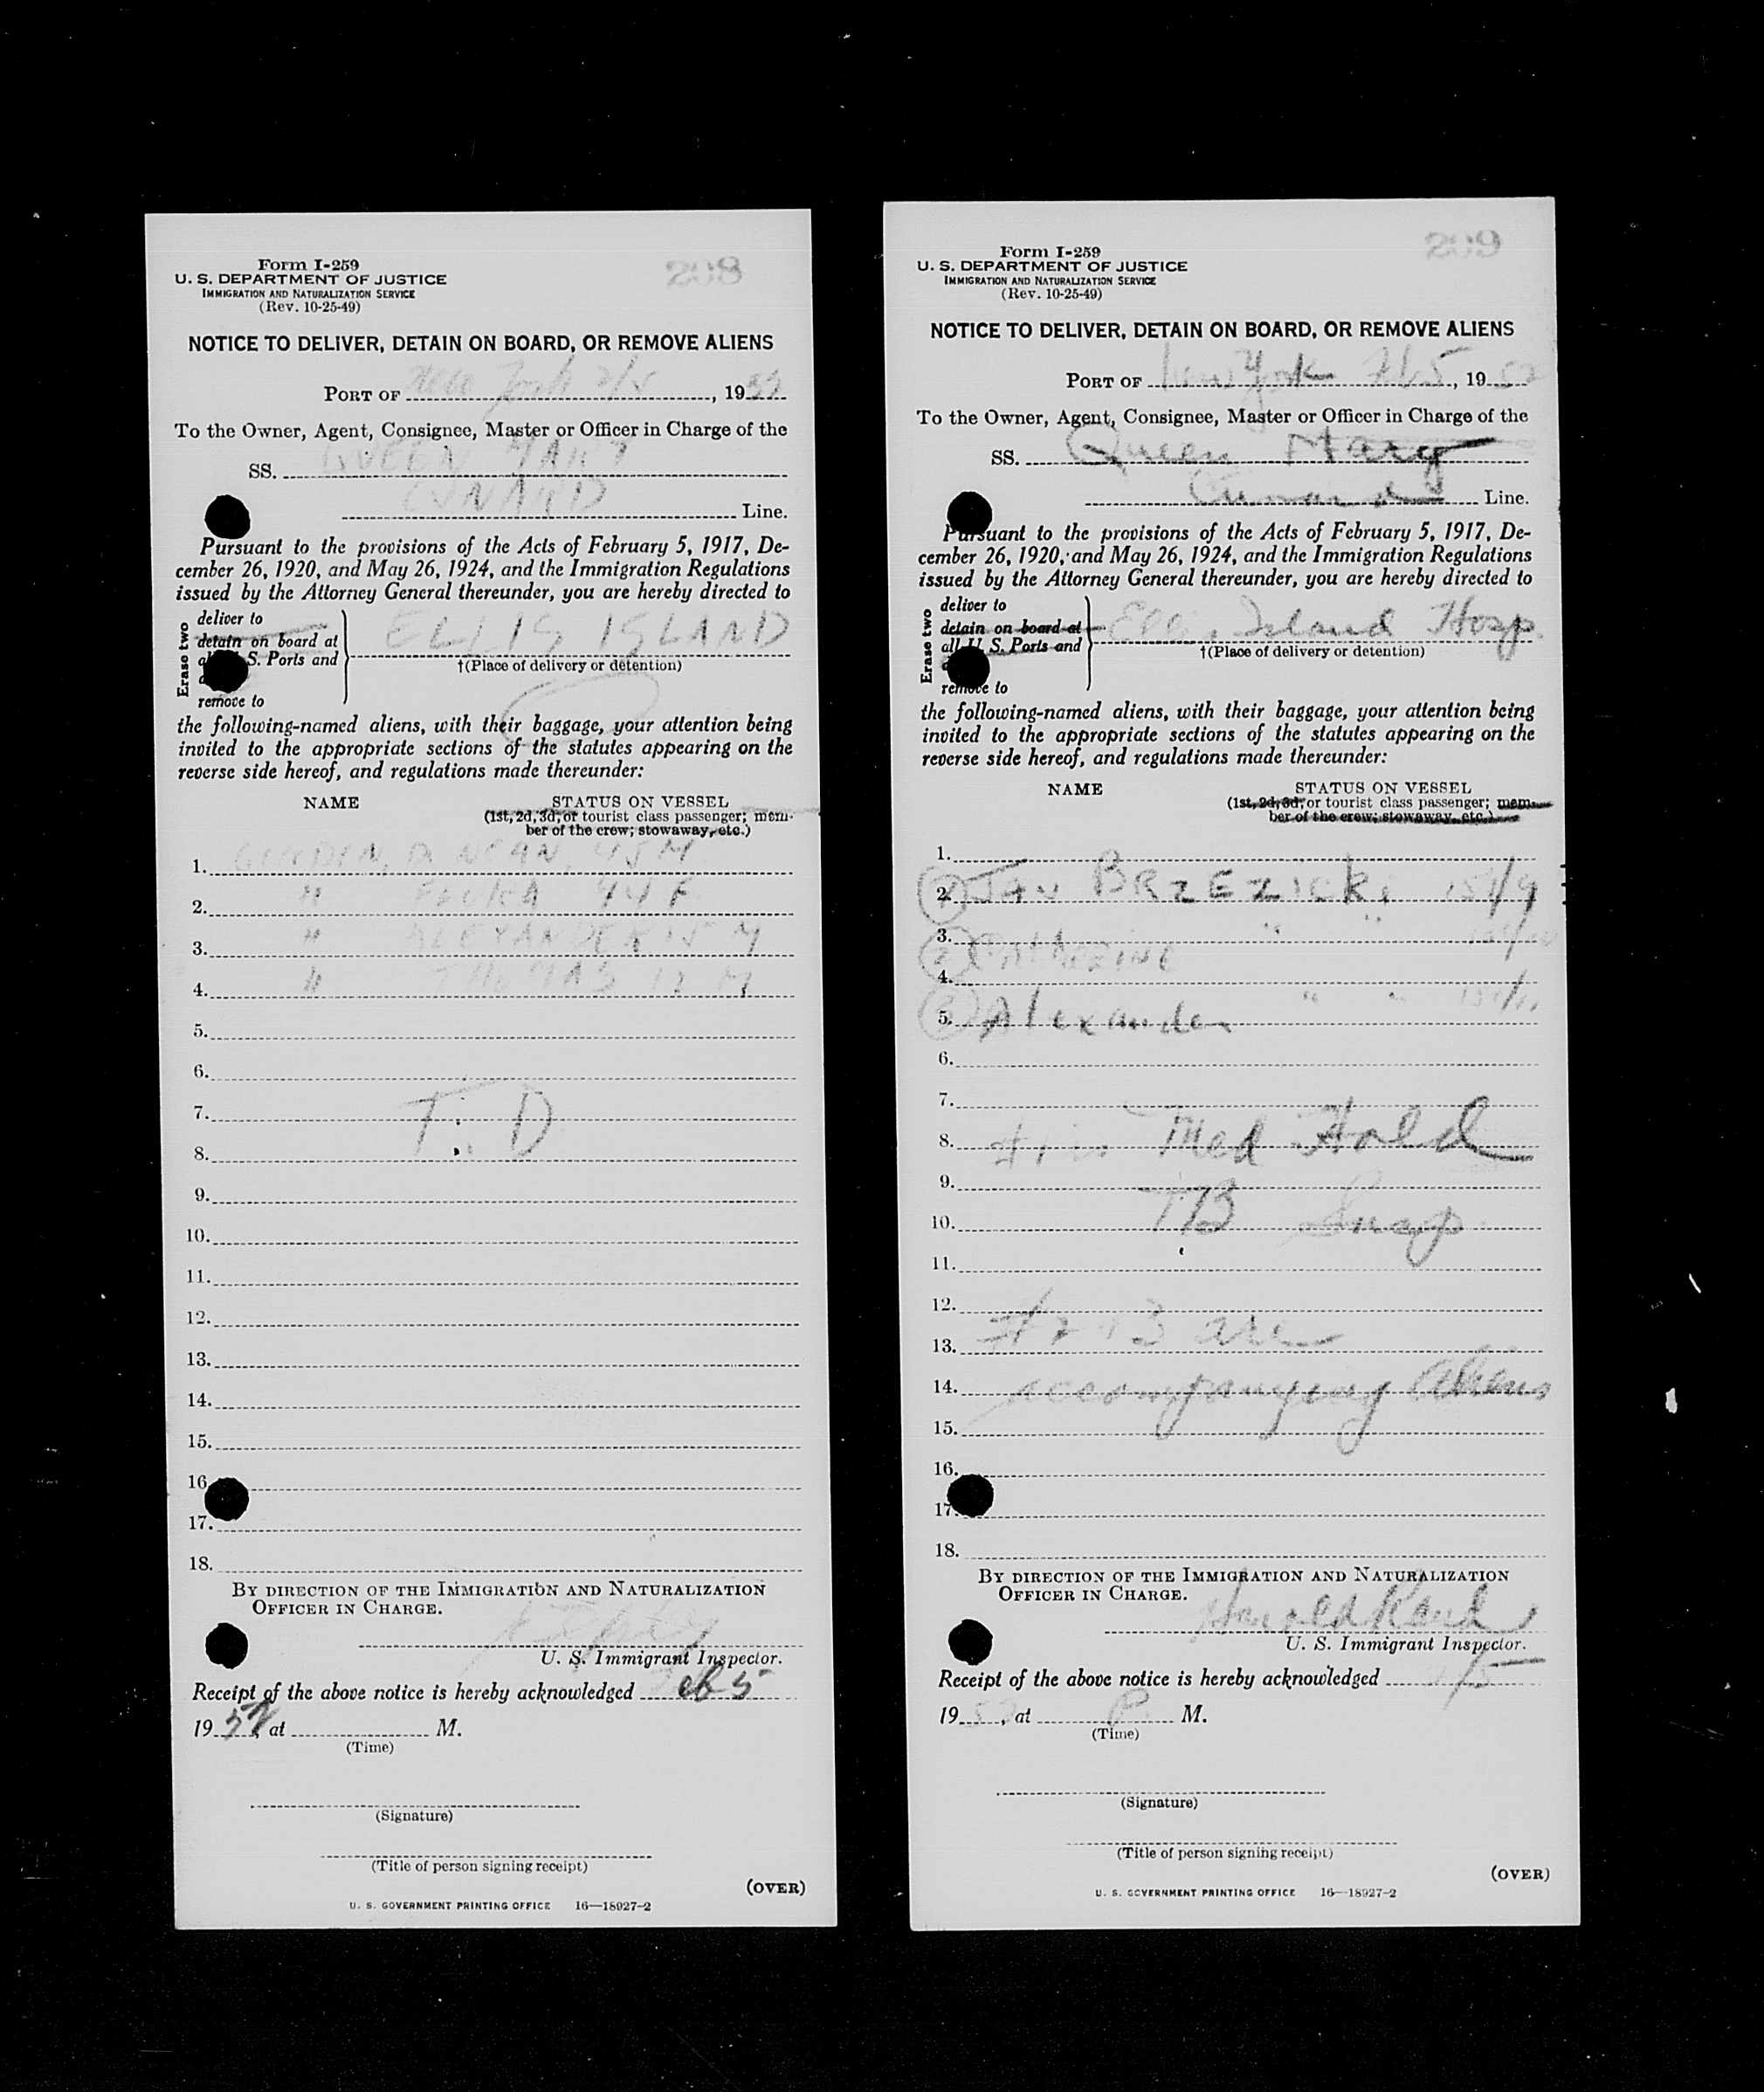 208
Form I-259
U. S. DEPARTMENT OF JUSTICE
IMMIGRATION AND NATURALIZATION SERVICE
(Rev. 10-25-49)
NOTICE TO DELIVER, DETAIN ON BOARD, OR REMOVE ALIENS
PORT OF New York 2/5, 1952
To the Owner, Agent, Consignee, Master or Officer in Charge of the
SS. QUEEN MARY
CUNARD Line.
Pursuant to the provisions of the Acts of February 5, 1917, De-
cember 26, 1920, and May 26, 1924, and the Immigration Regulations
issued by the Attorney General thereunder, you are hereby directed to
Erase two
deliver to
detain on board at
S. Ports and
remove to
ELLIS ISLAND
†(Place of delivery or detention)
the following-named aliens, with their baggage, your attention being
invited to the appropriate sections of the statutes appearing on the
reverse side hereof, and regulations made thereunder:
NAME STATUS ON VESSEL
(1st, 2d, 3d, or tourist class passenger; mem-
ber of the crew; stowaway, etc.)
1. DUNCAN, 45 M
2. " 44 F
3. " ALEXANDER 15 M
4. " THOMAS 12 M
5.
6.
7. T. D
8.
9.
10.
11.
12.
13.
14.
15.
16.
17.
18.
BY DIRECTION OF THE IMMIGRATION AND NATURALIZATION
OFFICER IN CHARGE.
U. S. Immigrant Inspector.
Receipt of the above notice is hereby acknowledged Feb 5
1952, at M.
(Time)
(Signature)
(Title of person signing receipt)
(OVER)
U. S. GOVERNMENT PRINTING OFFICE 16—18927-2
209
Form I-259
U. S. DEPARTMENT OF JUSTICE
IMMIGRATION AND NATURALIZATION SERVICE
(Rev. 10-25-49)
NOTICE TO DELIVER, DETAIN ON BOARD, OR REMOVE ALIENS
PORT OF New York Feb 5, 1952
To the Owner, Agent, Consignee, Master or Officer in Charge of the
SS. Queen Mary
Cunard Line.
Pursuant to the provisions of the Acts of February 5, 1917, De-
cember 26, 1920, and May 26, 1924, and the Immigration Regulations
issued by the Attorney General thereunder, you are hereby directed to
Erase two
deliver to
detain on board at
all U. S. Ports and
remove to
Ellis Island Hosp.
†(Place of delivery or detention)
the following-named aliens, with their baggage, your attention being
invited to the appropriate sections of the statutes appearing on the
reverse side hereof, and regulations made thereunder:
NAME STATUS ON VESSEL
(1st, 2d, 3d, or tourist class passenger; mem-
ber of the crew; stowaway, etc.)
1.
2. (1) Jan BRZEZICKI 151/9
3. " "
4. (2)
5. (3) Alexander " " 151/11
6.
7.
8. #1 is Med Hold
9.
10. TB Susp
11.
12.
13. #2 + 3 are
14. accompanying aliens
15.
16.
17.
18.
BY DIRECTION OF THE IMMIGRATION AND NATURALIZATION
OFFICER IN CHARGE.
Harold Rand
U. S. Immigrant Inspector.
Receipt of the above notice is hereby acknowledged 2/5
1952, at P. M.
(Time)
(Signature)
(Title of person signing receipt)
(OVER)
U. S. GOVERNMENT PRINTING OFFICE 16—18927-2